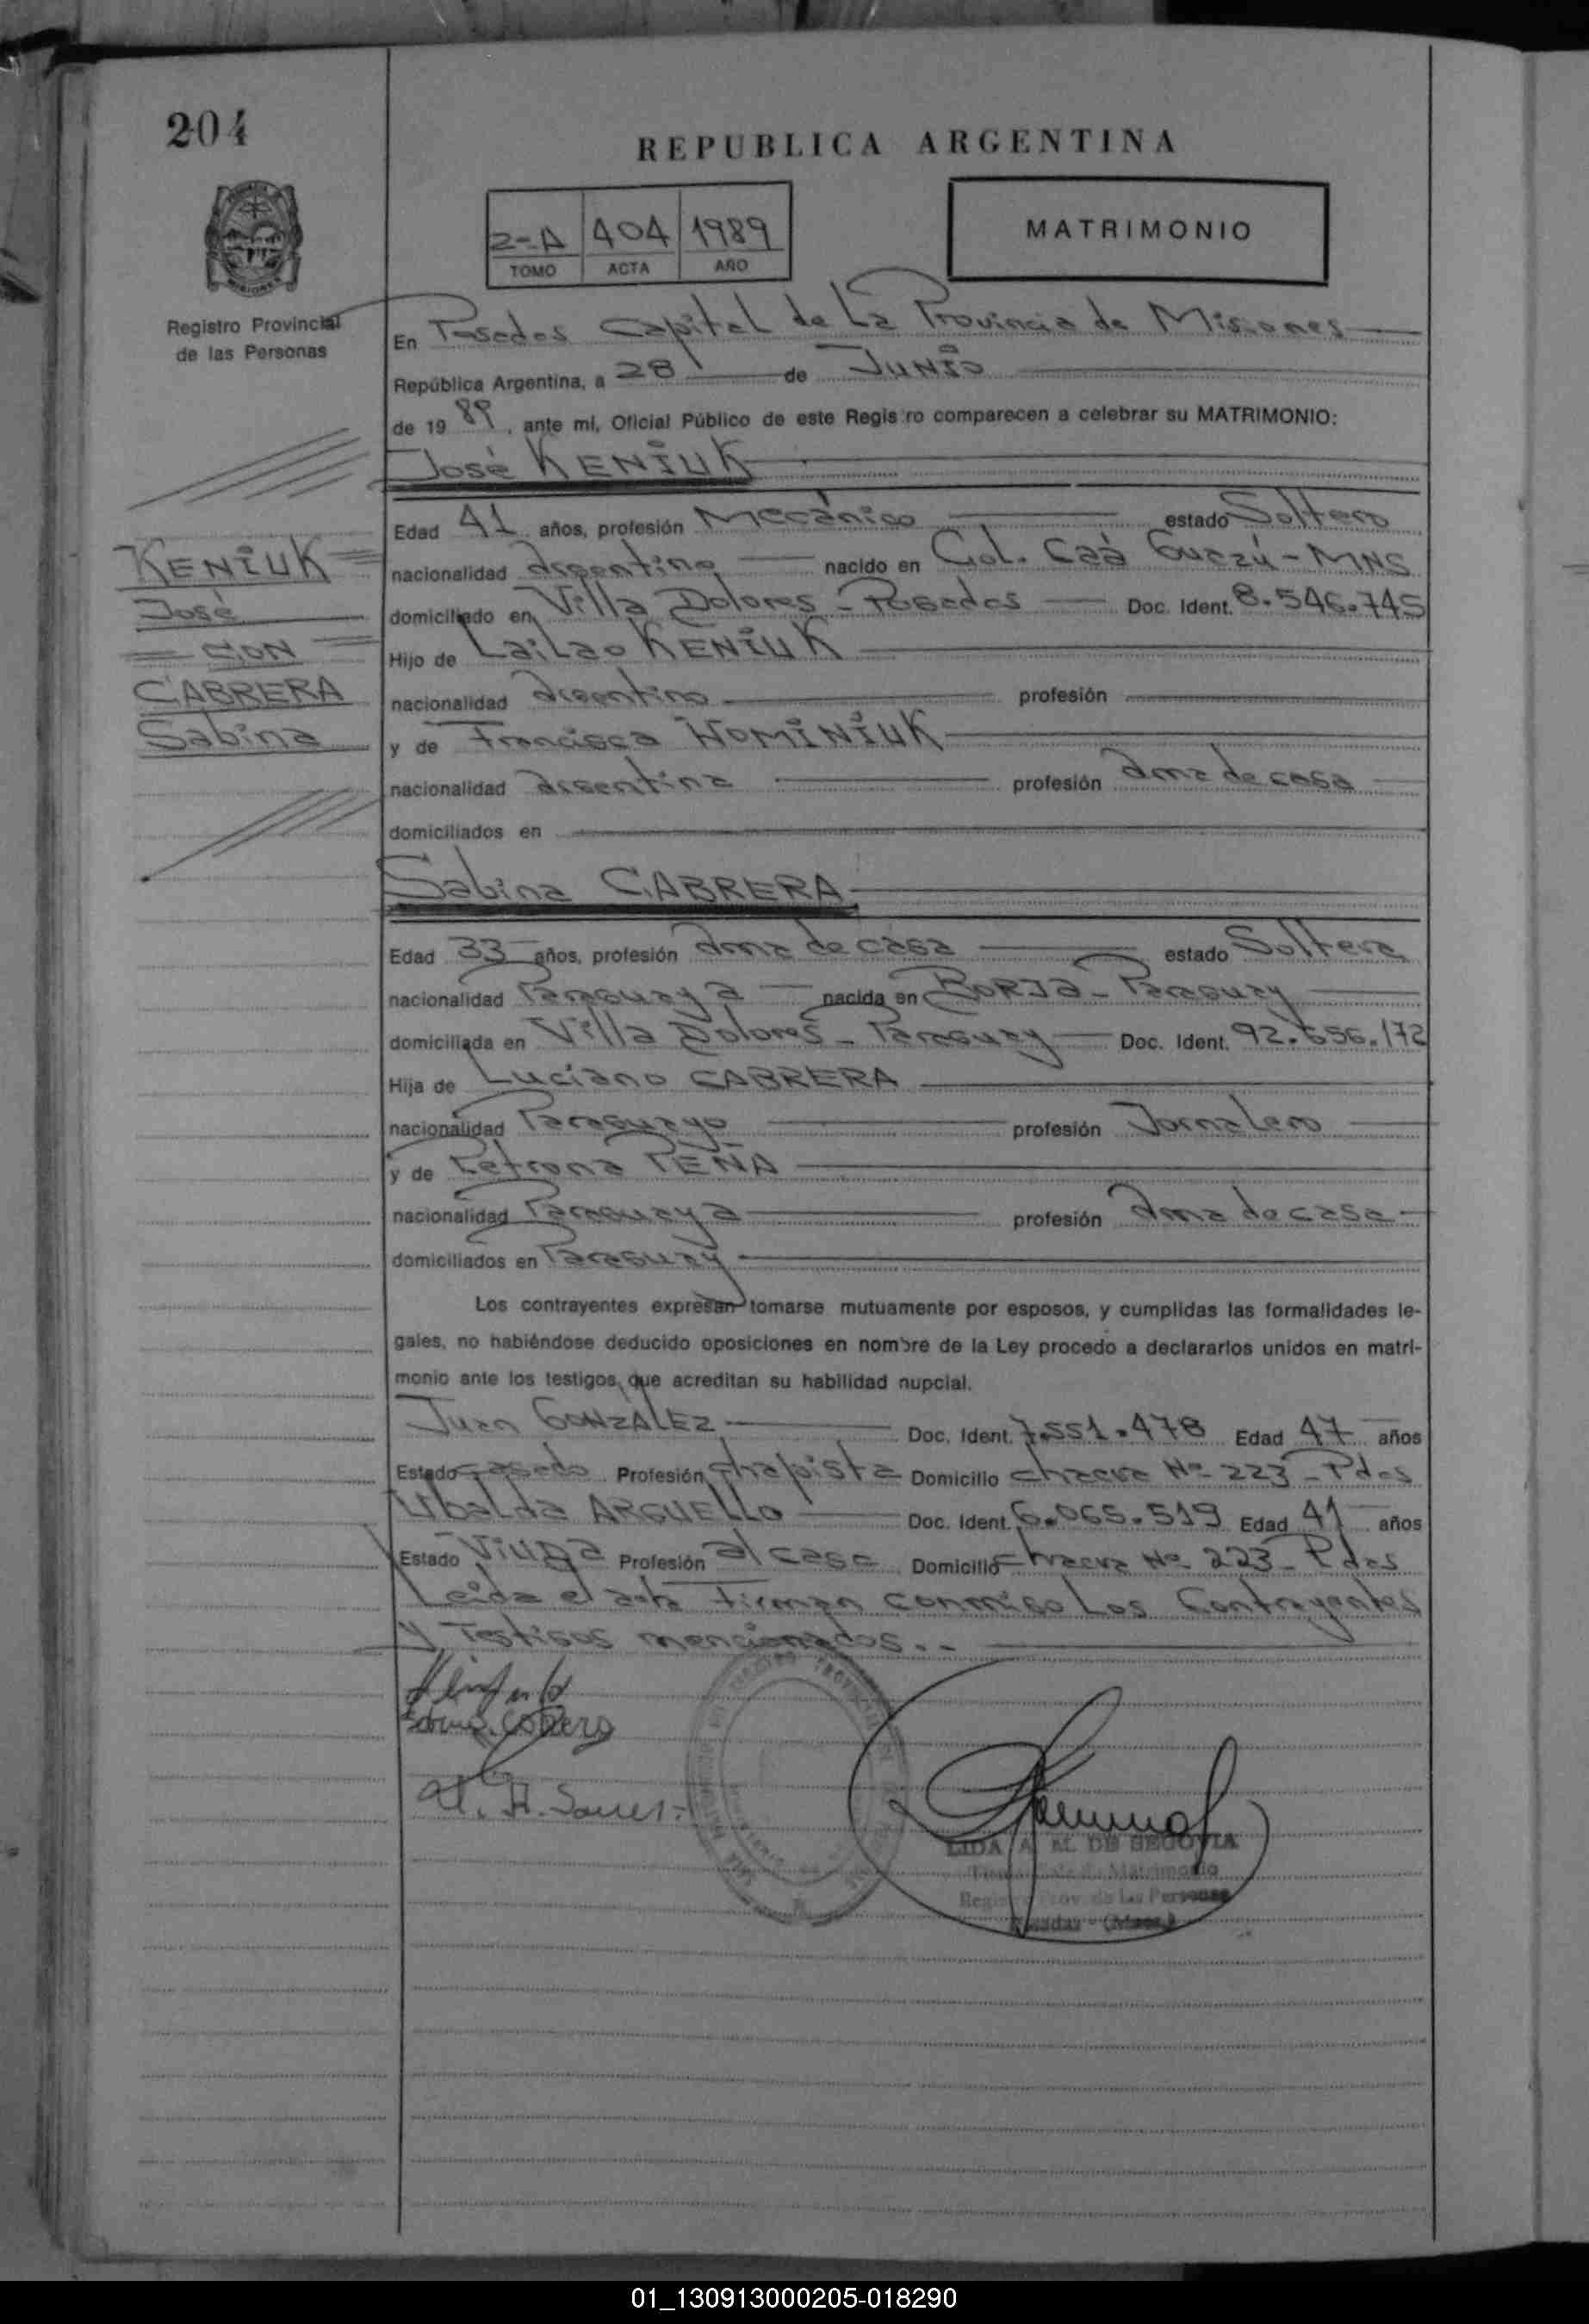 204
REPUBLICA ARGENTINA
2-A 404 1989
TOMO ACTA AÑO
MATRIMONIO
Registro Provincial
de las Personas
En Posadas Capital de La Provincia de Misiones
República Argentina, a 28 de JUNIO
de 1989, ante mi, Oficial Público de este Registro comparecen a celebrar su MATRIMONIO:
José KENIUK
Edad 41 años, profesión Mecánico estado Soltero
KENIUK
José
CON
CABRERA
Sabina
nacionalidad argentino nacido en Col. Caá Guazú - MNS
domiciliado en Villa Dolores - Posadas Doc. Ident. 8.546.745
Hijo de Lailao KENIUK
nacionalidad argentino profesión
y de Francisca HOMINIUK
nacionalidad argentina profesión ama de casa
domiciliados en
Sabina CABRERA
Edad 33 años, profesión ama de casa estado Soltera
nacionalidad Paraguaya nacida en BORJA - Paraguay
domiciliada en Villa Dolores - Paraguay Doc. Ident. 92.656.172
Hija de Luciano CABRERA
nacionalidad Paraguayo profesión Jornalero
y de Petrona PEÑA
nacionalidad Paraguaya profesión ama de casa
domiciliados en Paraguay
Los contrayentes expresan tomarse mutuamente por esposos, y cumplidas las formalidades le-
gales, no habiéndose deducido oposiciones en nombre de la Ley procedo a declararlos unidos en matri-
monio ante los testigos, que acreditan su habilidad nupcial.
Juan GONZALEZ Doc. Ident. 7.551.478 Edad 47 años
Estado casado Profesión chapista Domicilio chacra Nº 223 - Pdas
Ubalda ARGUELLO Doc. Ident. 6.065.519 Edad 41 años
Estado Viuda Profesión a/ casa Domicilio chacra Nº 223 - Pdas
Leida el acta Firman conmigo Los Contrayentes
y Testigos mencionados..-
LIDA A. M. DE SEGOVIA
de Matrimonio
Registro Prov. de las Personas
Posadas - (Mnes.)
01_130913000205-018290